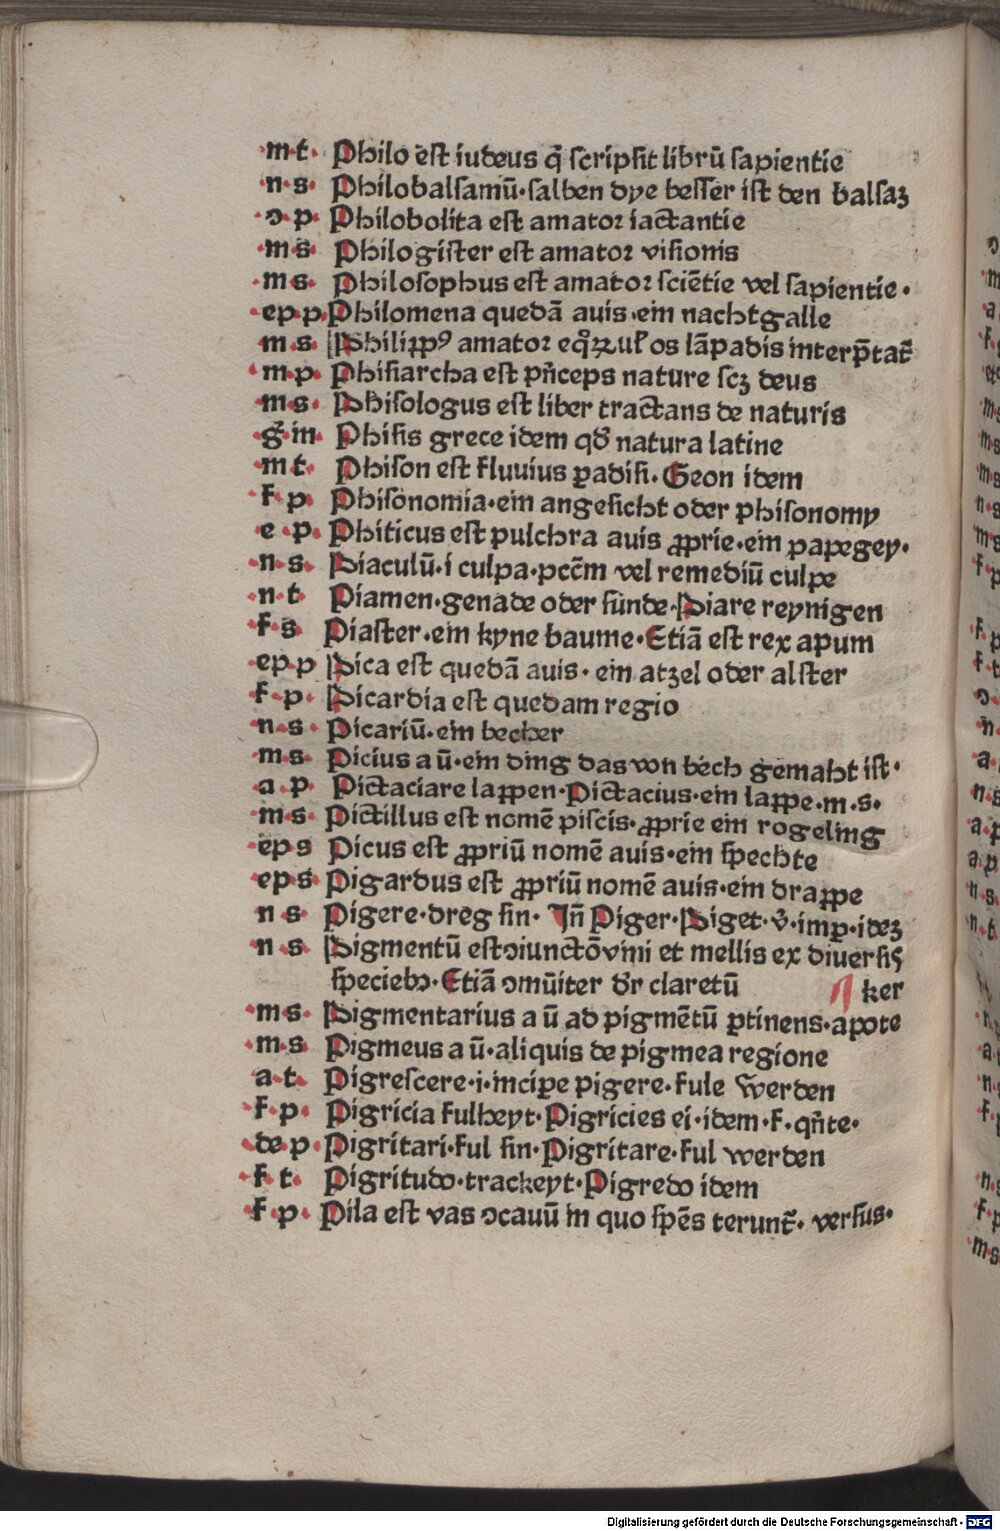 ·m·t· Philo est iudeus q̄ scripsit librū sapientie
·n·s· Philobalsamū·salben dye besser ist den balsaʒ
·ɔ·p· Philobolita est amator iactantie
·m·s· Philogister est amator visionis
·m·s· Philosophus est amator sciētie vel sapientie·
·ep·p· Philomena quedā auis·ein nachtgalle
m·s· Philippꝰ amator eqͦꝝ uł os lāpadis interp̄tat̄
·m·p· Phisiarcha est pn̄ceps nature scʒ deus
·m·s· Phisologus est liber tractans de naturis
·g̅·in· Phisis grece idem qd̄ natura latine
·m·t· Phison est fluuius ꝑadisi·Geon idem
·f·p· Phisonomia·ein angesicht oder phisonomy
·e·p· Phiticus est pulchra auis ꝓprie·ein papegey·
·n·s· Piaculū·i culpa·pcc̄m vel remediū culpe
·n·t· Piamen·genade oder sunde·Piare reynigen
·f·s Piaster·ein kyne baume·Etiā est rex apum
·ep·p Pica est quedā auis·ein atzel oder alster
·f·p· Picardia est quedam regio
·n·s· Picariū·ein becher
·m·s· Picius a ū·ein ding das von bech gemaht ist·
·a·p· Pictaciare lappen·Pictacius·ein lappe·m·s·
·m·s· Pictillus est nomē piscis·ꝓprie ein rogeling
·ep·s Picus est ꝓpriū nomē auis·ein spechte
·ep·s· Pigardus est ꝓpriū nomē auis·ein drappe
·n·s· Pigere·dreg sin·Jn̄ Piger·Piget·v̄·imp·ideʒ
·n·s Pigmentū est ɔiunctō vini et mellis ex diuersis
speciebꝰ·Etiā ɔmūiter dr̄ claretū ker
·m·s· Pigmentarius a ū ad pigmētū ꝑtinens·apote
·m·s Pigmeus a ū·aliquis de pigmea regione
·a·t· Pigrescere·i·incipe pigere·fule werden
·f·p· Pigricia fulheyt·Pigricies ei·idem·f·qn̄te·
·de·p· Pigritari·ful sin·Pigritare·ful werden
·f·t· Pigritudo·trackeyt·Pigredo idem
·f·p· Pila est vas ɔcauū in quo spēs terunt̄·versus·
Digitalisierung gefördert durch die Deutsche Forschungsgemeinschaft - DFG